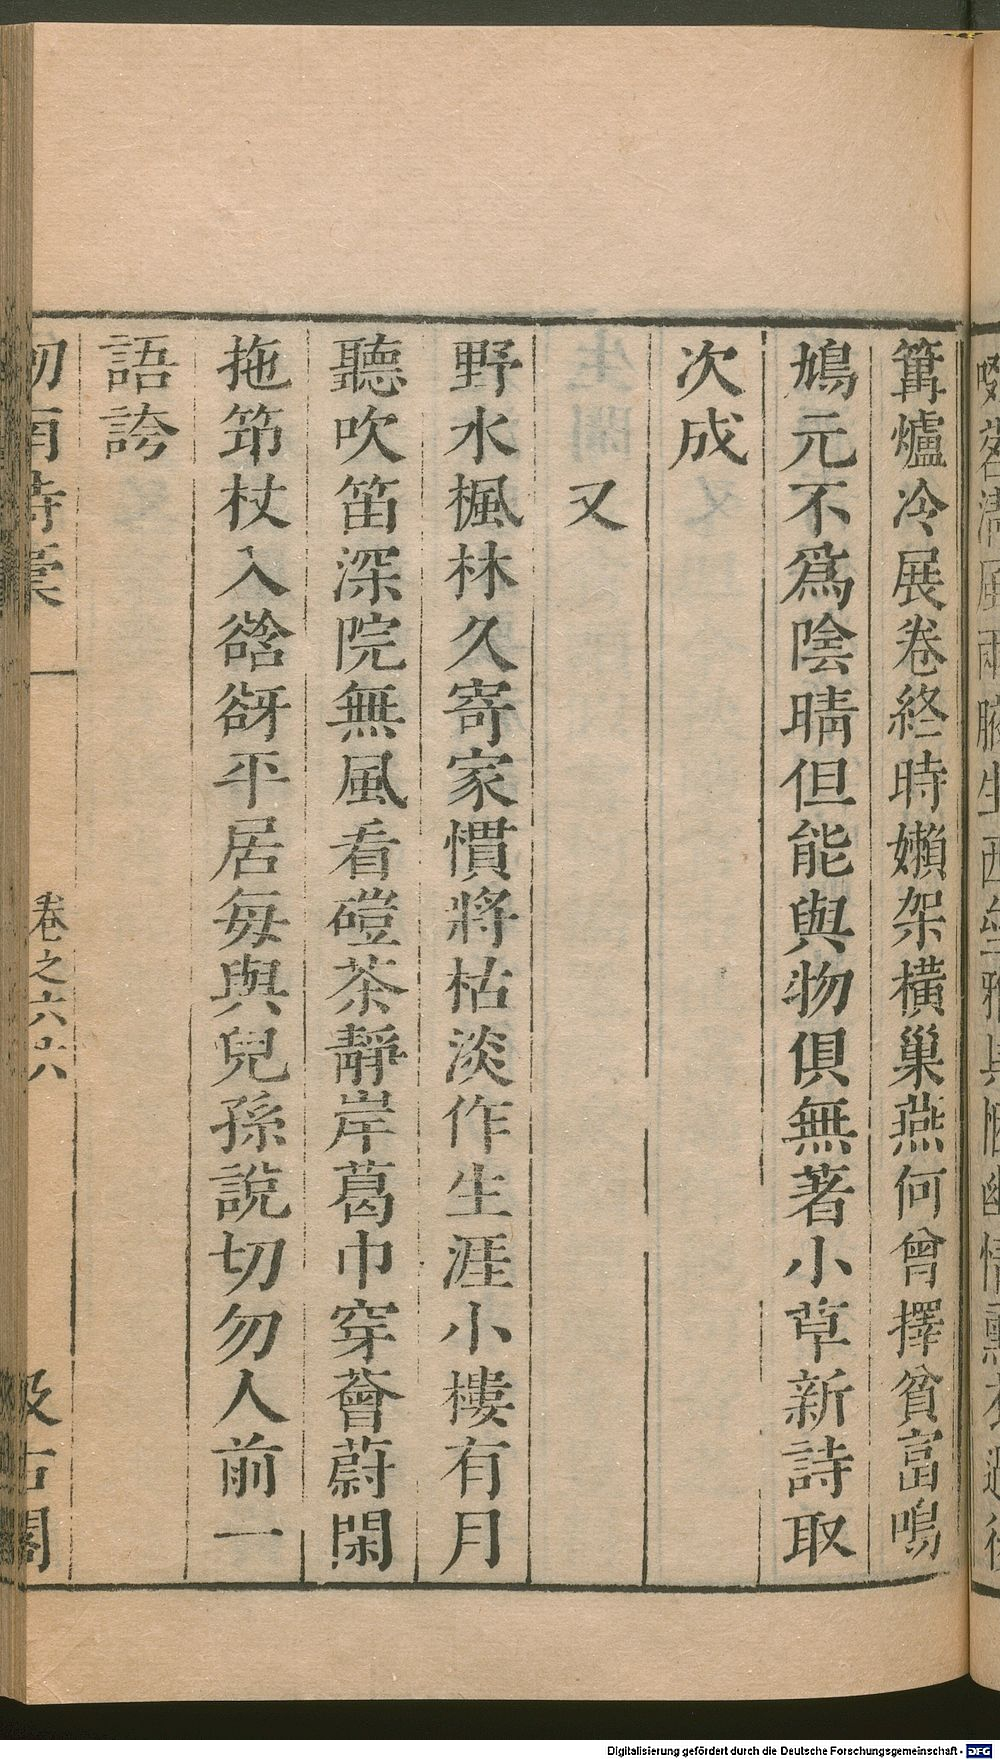 篝爐冷展卷終時嬾架橫巢燕何曾擇貧富鳴
鳩元不爲陰晴但能與物俱無著小草新詩取
次成
又
野水楓林久寄家慣將枯淡作生涯小樓有月
聽吹笛深院無風看磑茶靜岸葛巾穿薈蔚閑
拖笻杖入谽谺平居每與兒孫說切勿人前一
語誇
卷之六 六
汲古閣
Digitalisierung gefördert durch die Deutsche Forschungsgemeinschaft - DFG